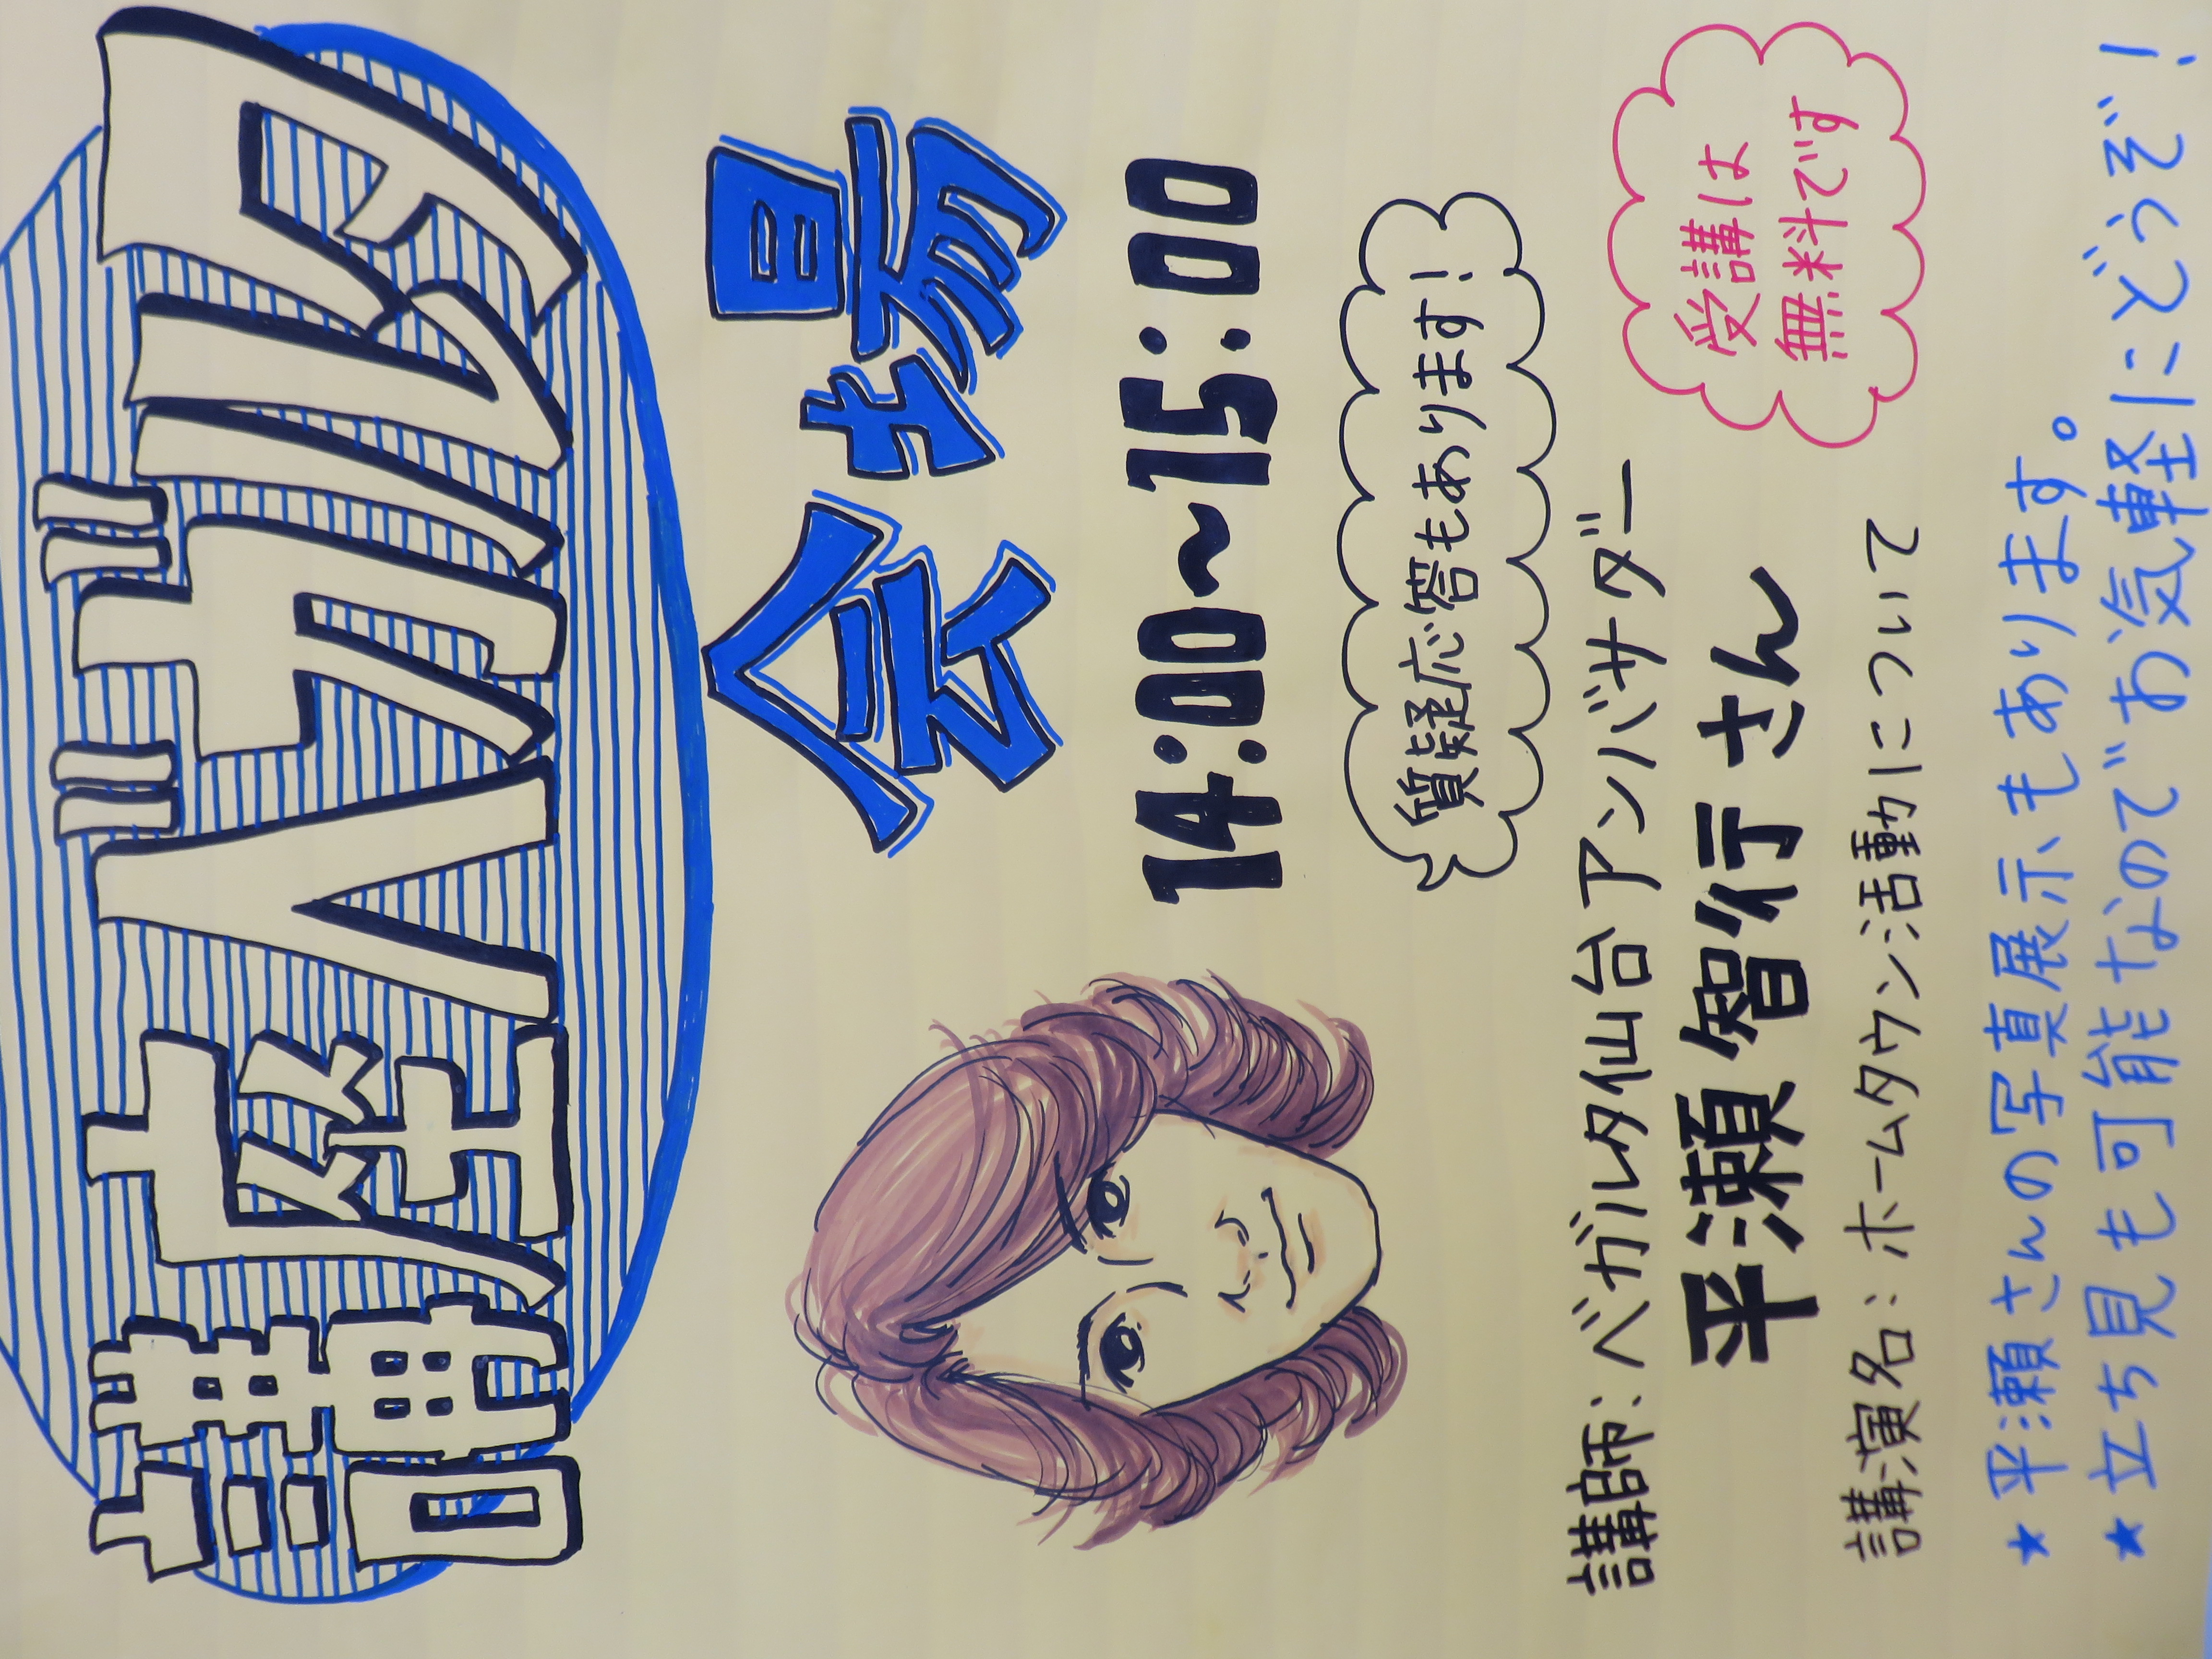 講座ベガルタ
会場
14:00~15:00
質疑応答もあります!
講師:ベガルタ仙台アンバサダー
平瀬智行さん
受講は
無料です
講演名:ホームタウン活動について
★平瀬さんの写真展示もあります。
★立ち見も可能なのでお気軽にどうぞ!